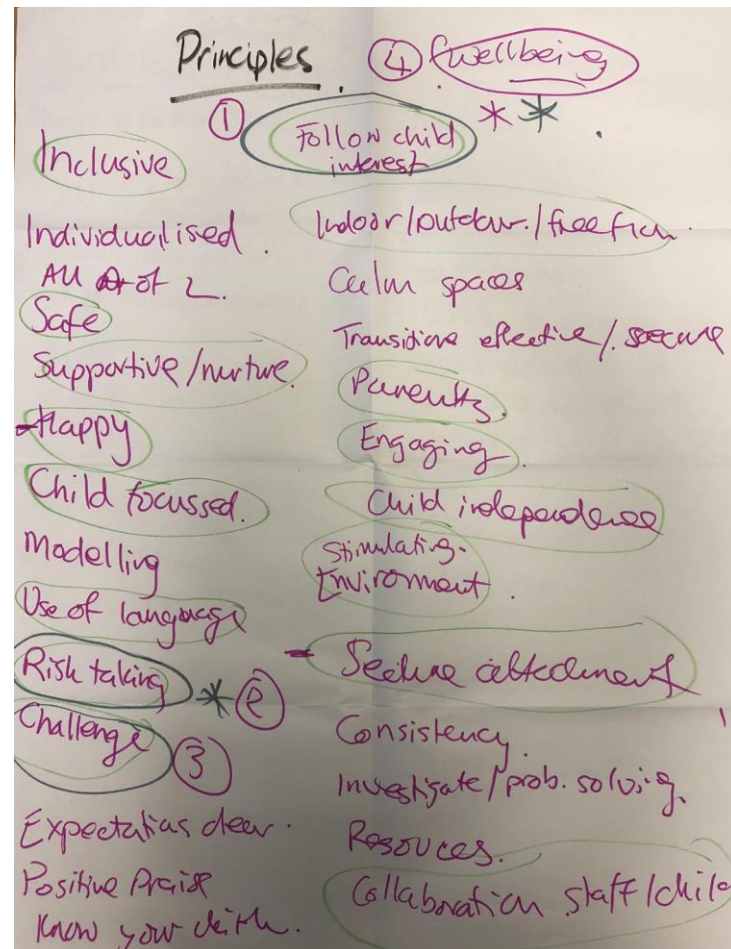 Principles
④ wellbeing
① Follow child
interest
* *
Inclusive
Individualised.
All of L.
Safe
Supportive/nurture.
Happy
Child focussed.
Modelling
Use of language
Risk taking * ②
Challenge ③
Expectations clear.
Positive Praise
Know your
Indoor/outdoor/free
Calm spaces
Transitions effective/secure
Parents.
Engaging.
Child independence
Stimulating.
Environment.
- Secure attachment
Consistency.
Investigate/prob. solving.
Resouces.
Collaboration staff/child